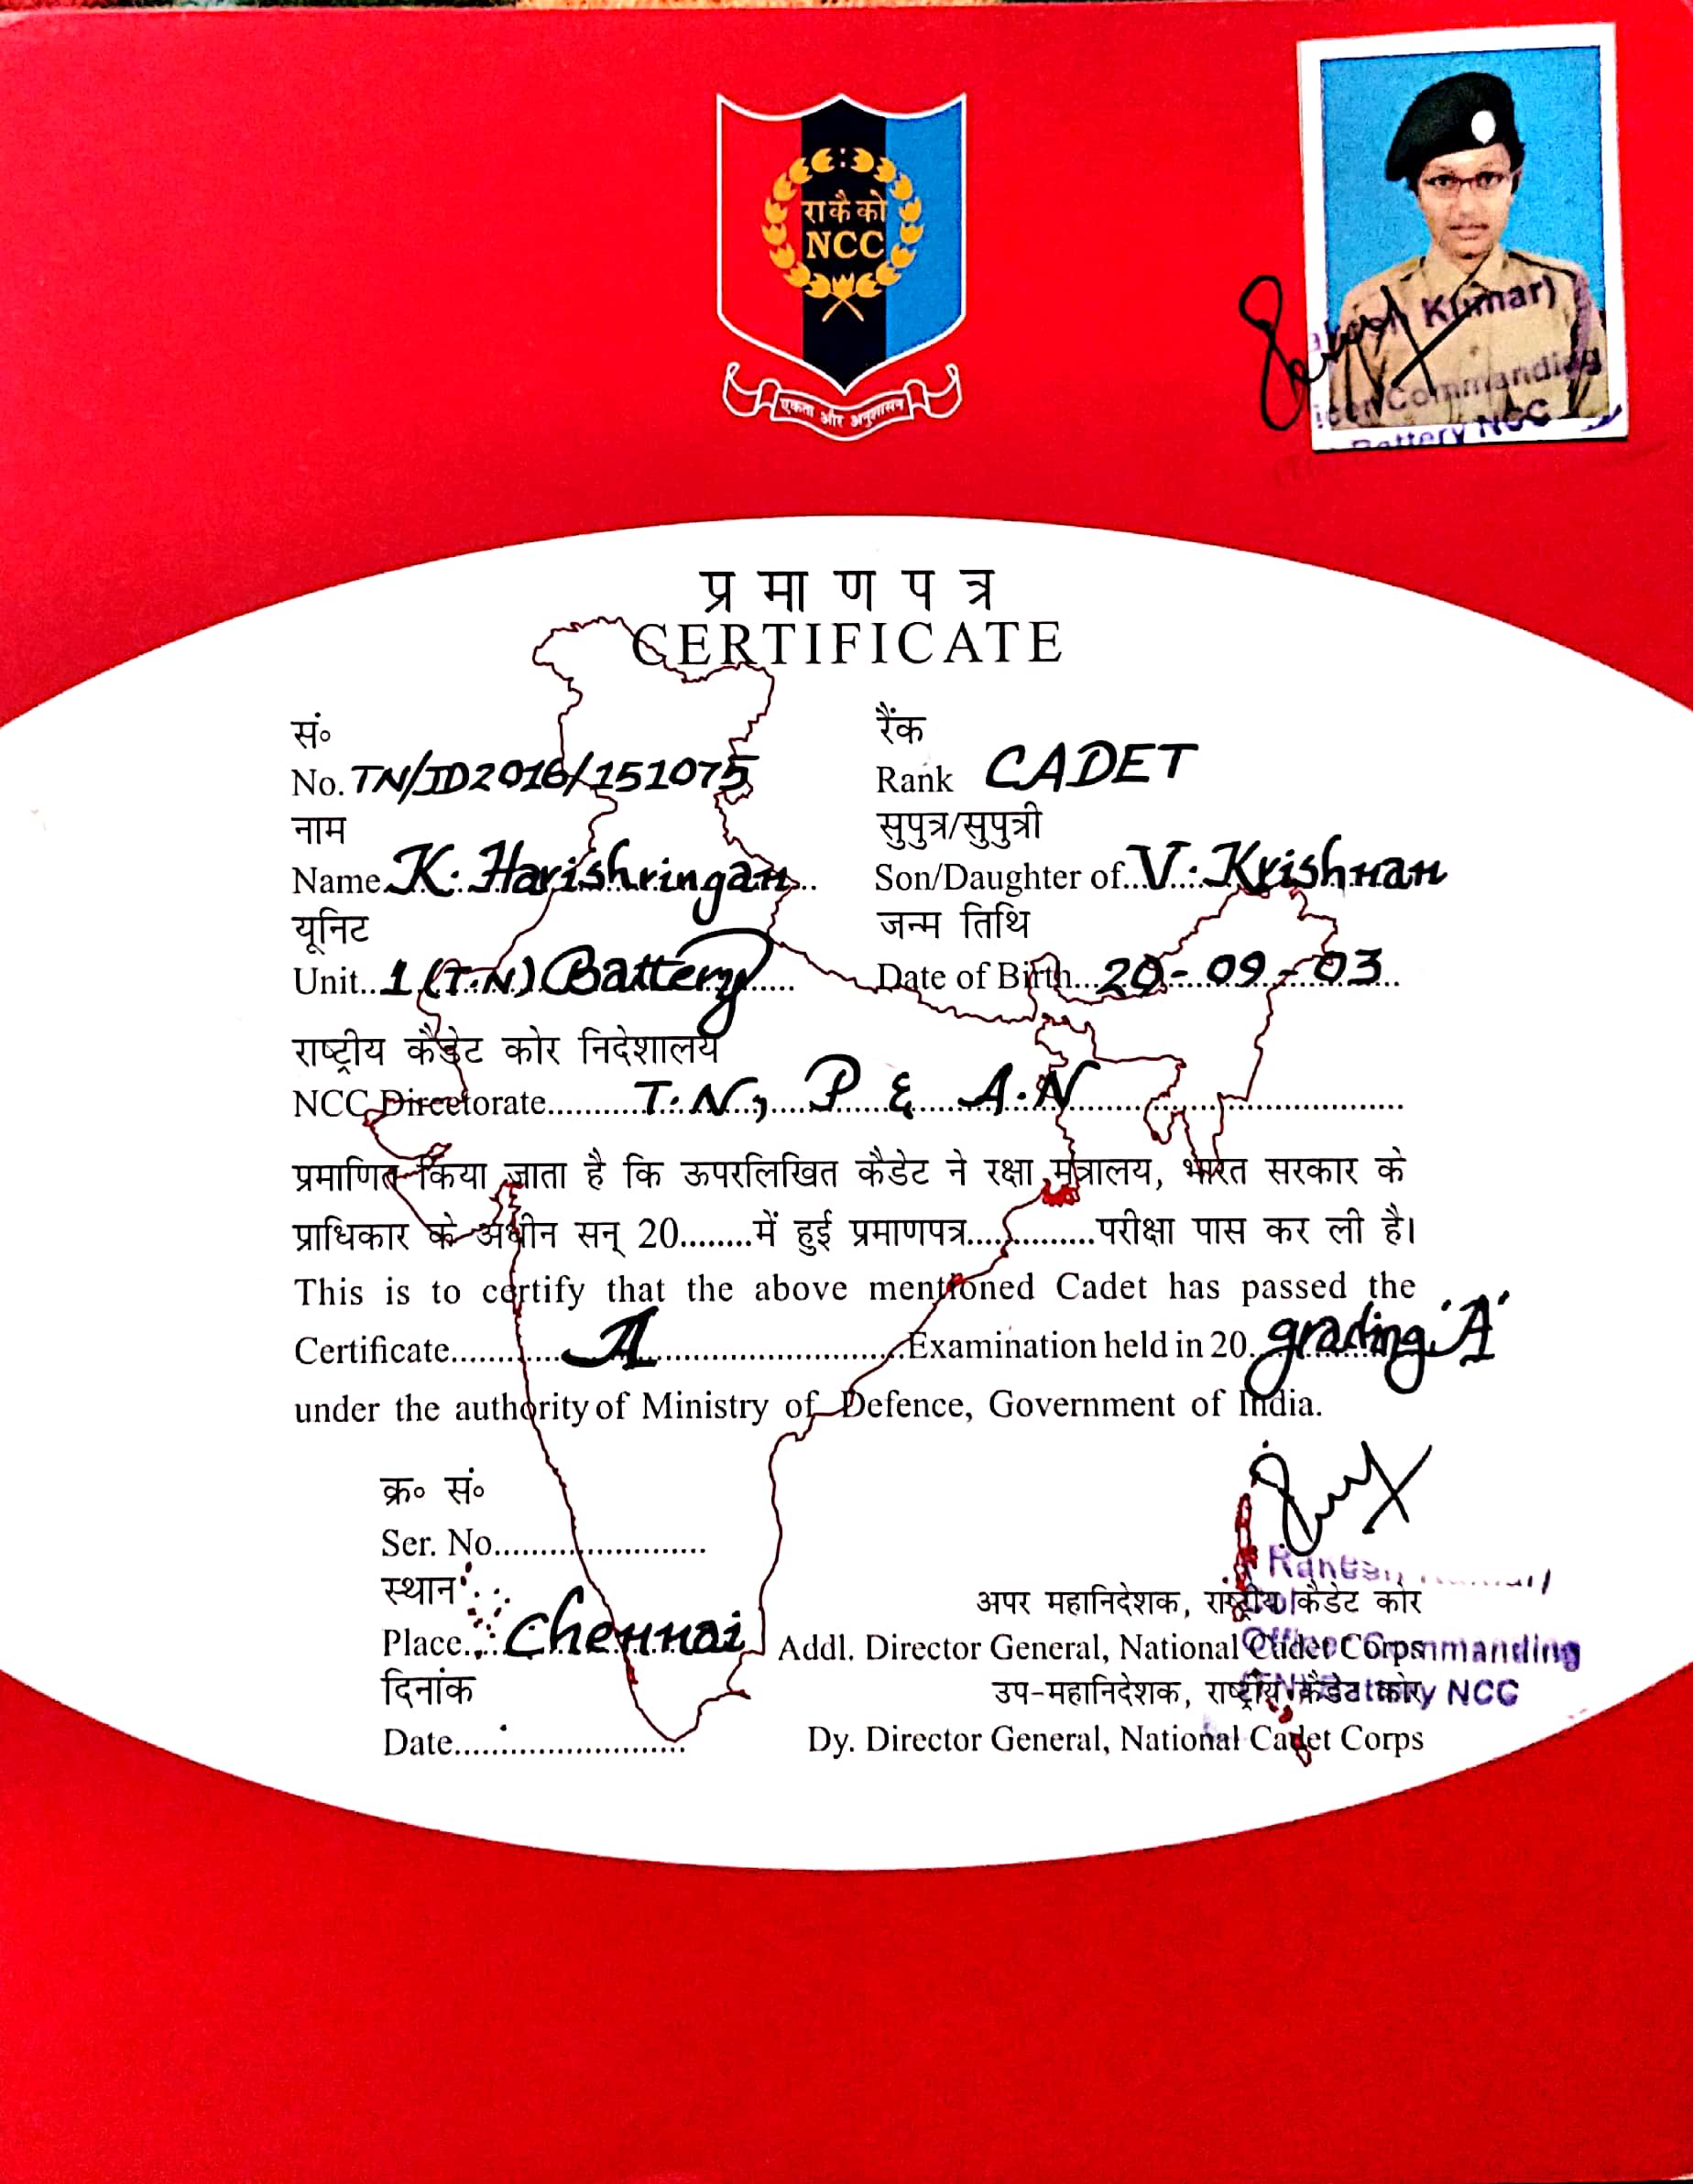 रा कै को
NCC
एकता और अनुशासन
Kumar)
Commanding
Battery NCC
प्र मा ण प त्र
CERTIFICATE
सं०
No. TN/JD2016/151075
रैंक
Rank CADET
नाम
Name K. Harishringan
सुपुत्र/सुपुत्री
Son/Daughter of V. Krishnan
यूनिट
Unit 1 (T.N) Battery
जन्म तिथि
Date of Birth 20-09-03
राष्ट्रीय कैडेट कोर निदेशालय
NCC Directorate T.N, P & A.N
प्रमाणित किया जाता है कि ऊपरलिखित कैडेट ने रक्षा मंत्रालय, भारत सरकार के
प्राधिकार के अधीन सन् 20........में हुई प्रमाणपत्र..............परीक्षा पास कर ली है।
This is to certify that the above mentioned Cadet has passed the
Certificate A Examination held in 20 grading 'A'
under the authority of Ministry of Defence, Government of India.
क्र० सं०
Ser. No........................
स्थान
Place Chennai
दिनांक
Date..........................
अपर महानिदेशक, राष्ट्रीय कैडेट कोर
Addl. Director General, National Cadet Corps
उप-महानिदेशक, राष्ट्रीय कैडेट कोर
Dy. Director General, National Cadet Corps
Officer Commanding
Battery NCC